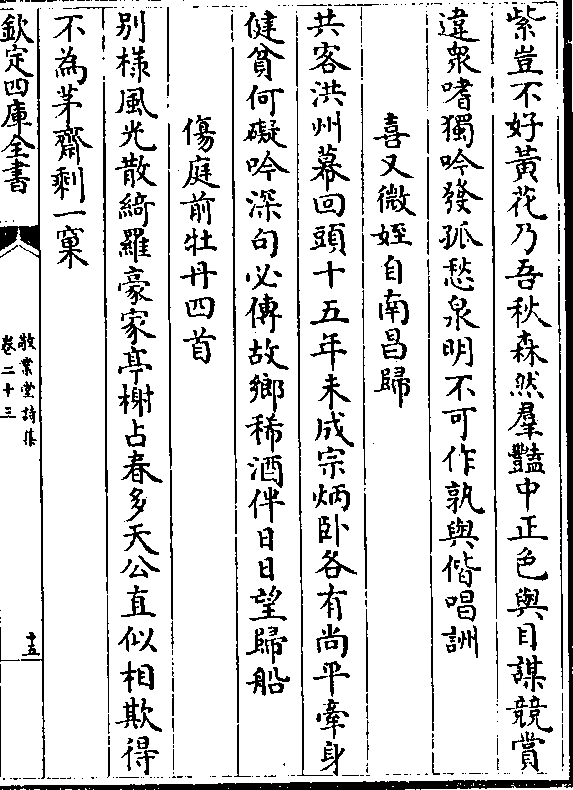 紫豈不好黃花乃吾秋森然羣豔中正色與目謀競賞
違衆嗜獨吟發孤愁泉明不可作孰與偕唱詶
喜又微姪自南昌歸
共客洪州幕回頭十五年未成宗炳卧各有尚平牽身
健貧何礙吟深句必傳故鄉稀酒伴日日望歸船
傷庭前牡丹四首
别様風光散綺羅豪家亭榭占春多天公直似相欺得
不為茅齋剩一窠
欽定四庫全書
敬業堂詩集
卷二十三
十五